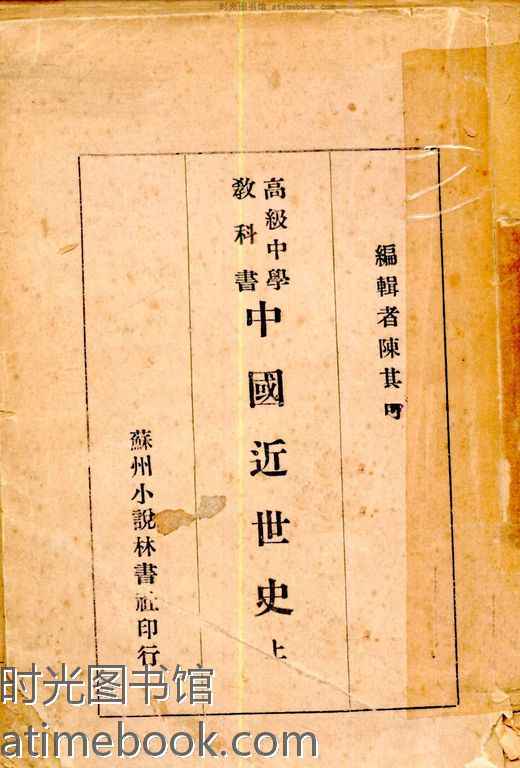 时光图书馆 www.atimebook.com
編輯者陳其可
高級中學
教科書
中國近世史 上
蘇州小說林書社印行
时光图书馆
atimebook.com